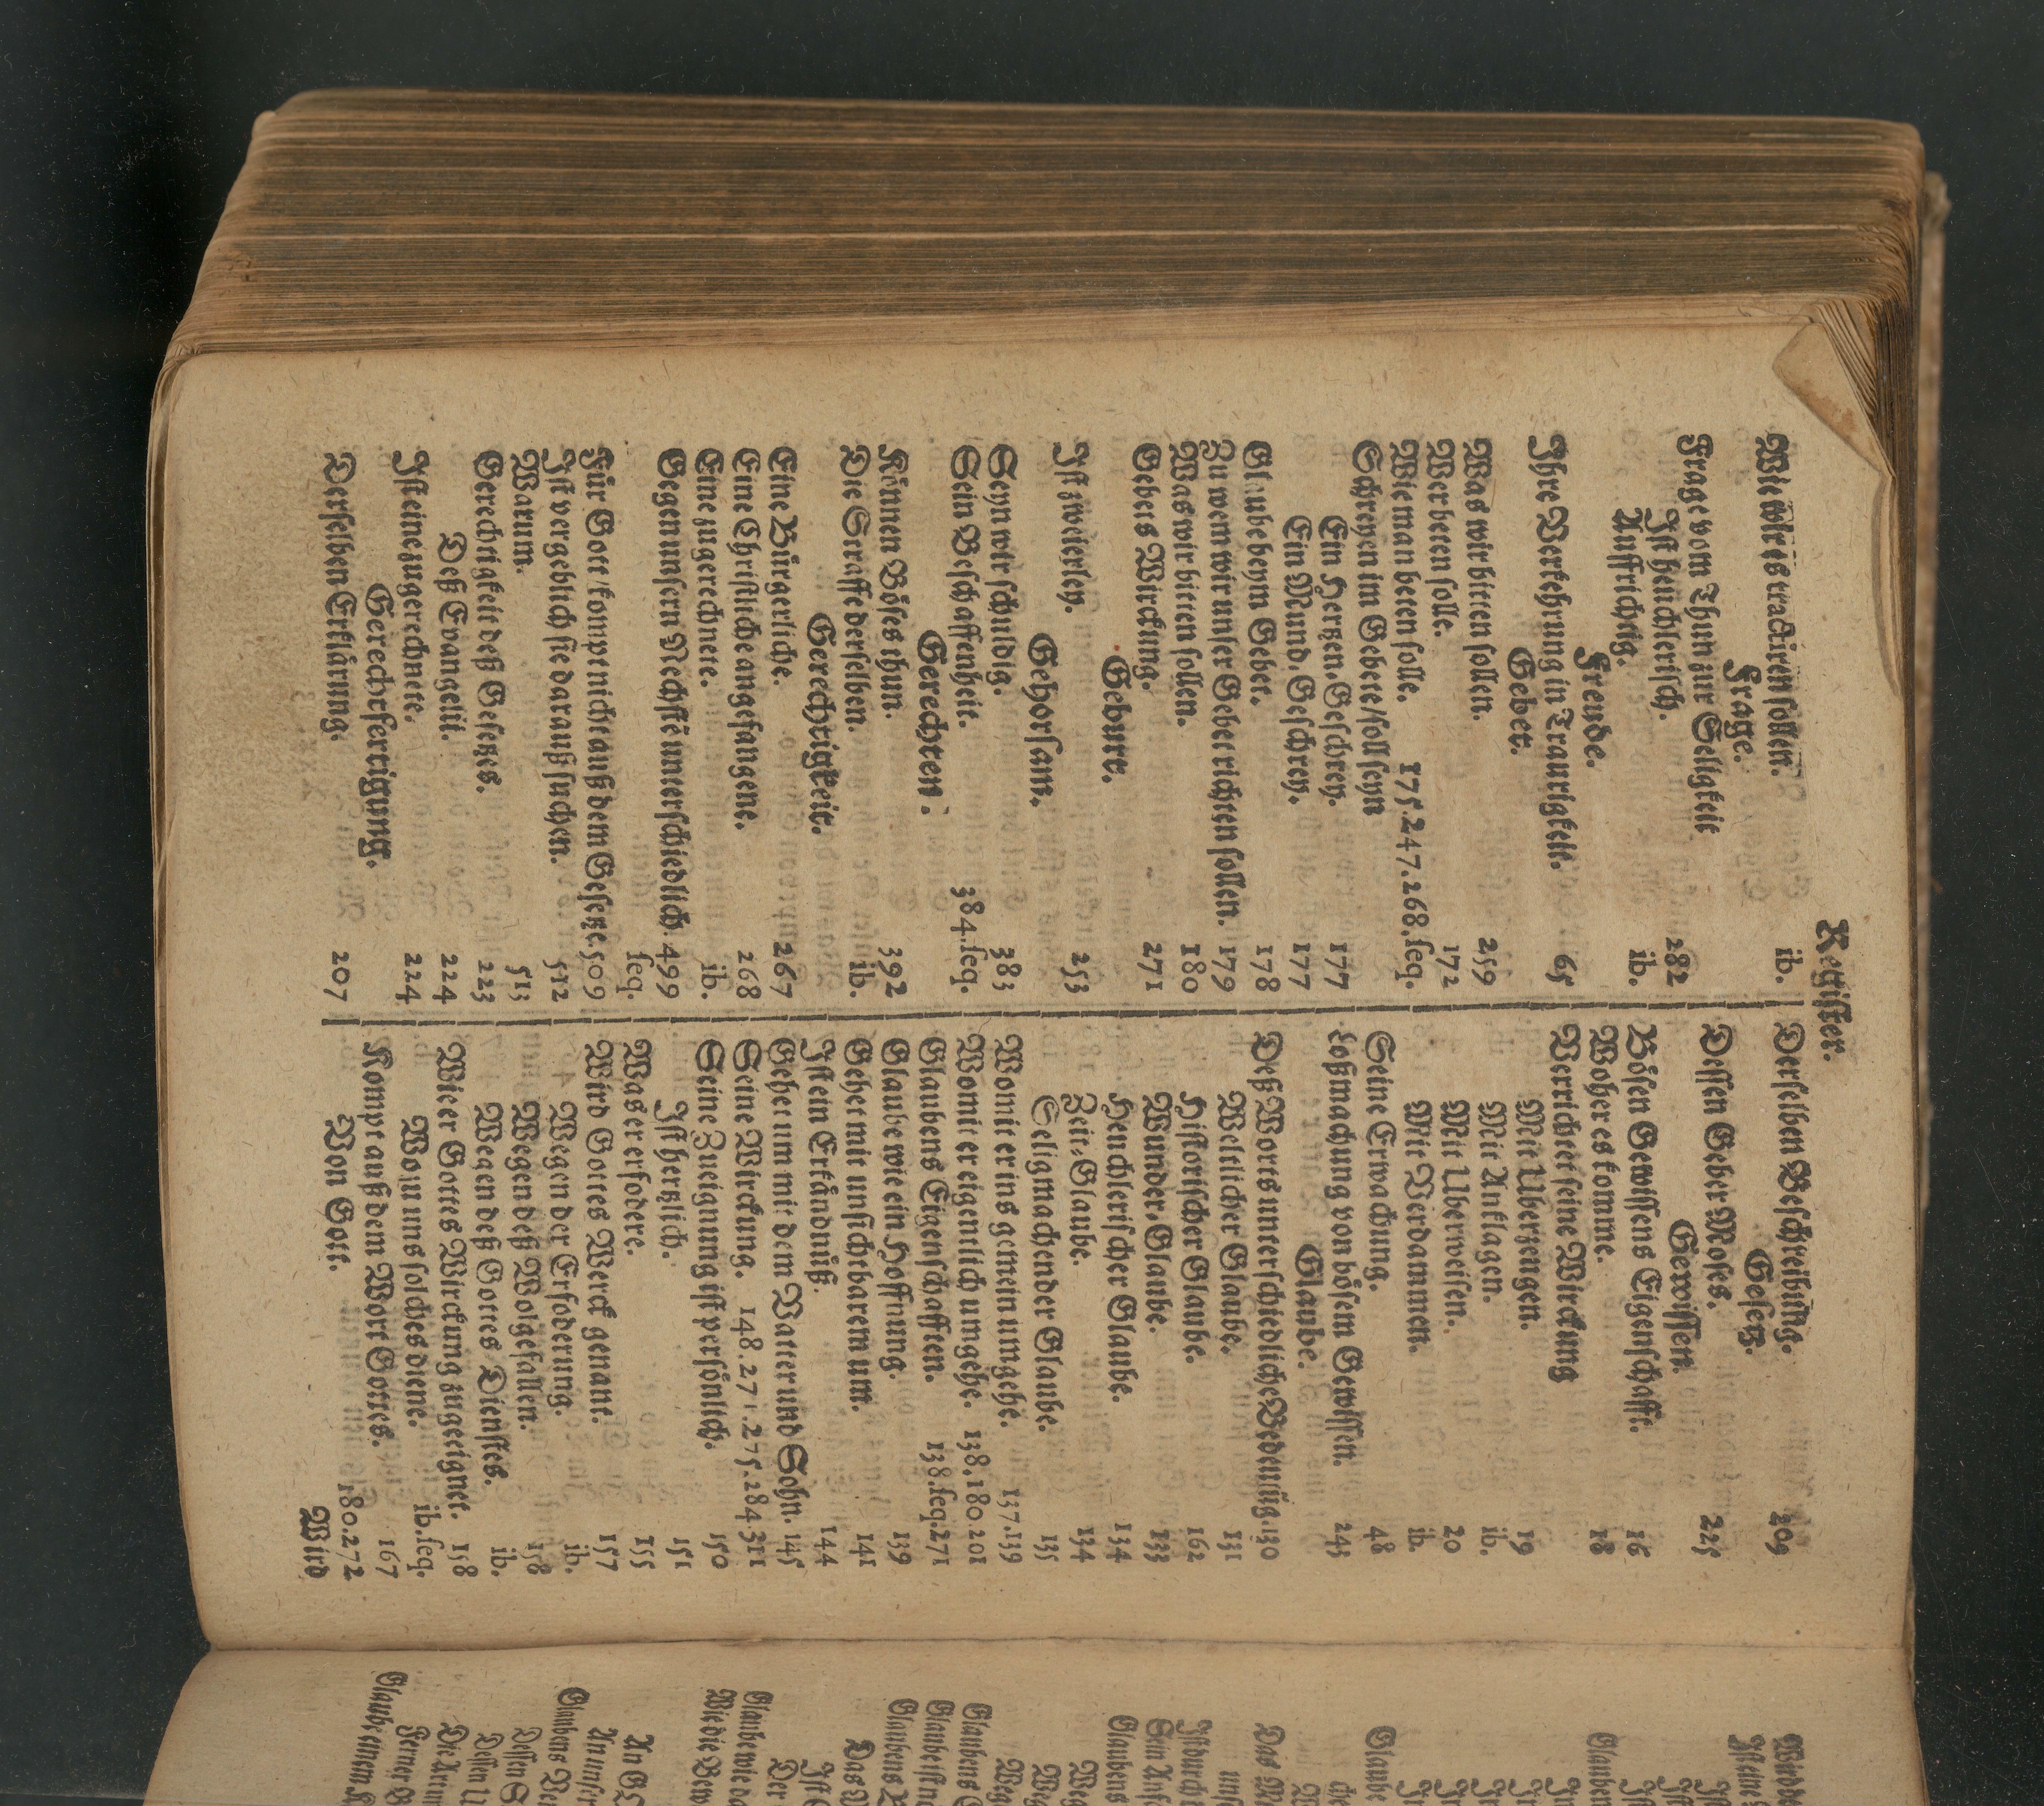 Register.
Wie wir es tractiren sollen. ib.
Frage.
Frage vom Thun zur Seligkeit
Ist heuchlerisch. 282
Auffrichtig. ib.
Freude.
Ihre Verkehrung in Traurigkeit. 65
Gebet.
Was wir bitten sollen. 259
Wer beten solle. 172
Wie man beten solle. 175.247.268.seq.
Schreyen im Gebete/soll seyn
Ein Hertzen-Geschrey. 177
Ein Mund-Geschrey. 177
Glaube beym Gebet. 178
Zu wem wir unser Gebet richten sollen. 179
Was wir bitten sollen. 180
Gebets Wirckung. 271
Geburt.
Ist zweierley. 253
Gehorsam.
Seyn wir schuldig. 383
Sein Beschaffenheit. 384.seq.
Gerechten.
Können Böses thun. 392
Die Straffe derselben. ib.
Gerechtigkeit.
Eine Bürgerliche. 267
Eine Christliche angefangene. 268
Eine zugerechnete. ib.
Gegen unsern Nechsten unterschiedlich. 499
seq.
Für Gott/kompt nicht auß dem Gesetze. 509
Ist vergeblich sie darauß suchen. 512
Warum. 513
Gerechtigkeit deß Gesetzes. 223
Deß Evangelii. 224
Ist eine zugerechnete. 224
Gerechtfertigung.
Derselben Erklärung. 207
Derselben Beschreibung. 209
Gesetz.
Dessen Geber Moses. 225
Gewissen.
Bösen Gewissens Eigenschafft. 16
Woher es komme. 18
Verrichtet seine Wirckung
Mit Ubertzeugen. 19
Mit Anklagen. ib.
Mit Uberweisen. 20
Mit Verdammen. ib.
Seine Erwachung. 48
Loßmachung von bösem Gewissen. 243
Glaube.
Deß Worts unterschiedliche Bedeutūg. 130
Weltlicher Glaube. 131
Historischer Glaube. 162
Wunder-Glaube. 133
Heuchlerischer Glaube. 134
Zeit-Glaube. 134
Seligmachender Glaube. 135
Womit er ins gemein umgehe. 137.139
Womit er eigentlich umgehe. 138.180.201
Glaubens Eigenschafften. 138.seq.271
Glaube wie ein Hoffnung. 139
Gehet mit unsichtbarem um. 141
Ist ein Erkändnüß. 144
Gehet um mit dem Vatter und Sohn. 145
Seine Wirckung. 148.271.275.284.311
Seine Zueignung ist persönlich. 150
Ist hertzlich. 151
Was er erfodere. 155
Wird Gottes Werck genant. 157
Wegen der Erfoderung. ib.
Wegen deß Wolgefallen. 158
Wegen deß Gottes Dienstes. ib.
Wie er Gottes Wirckung zugeeignet. 158
Wozu uns solches diene. ib.seq.
Kompt auß dem Wort Gottes. 167
Von Gott. 180.272
Wird